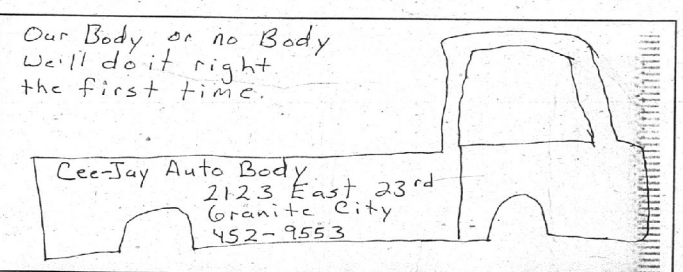 Our Body or no Body
We'll do it right
the first time.
Cee-Jay Auto Body
2123 East 23rd
Granite City
452-9553